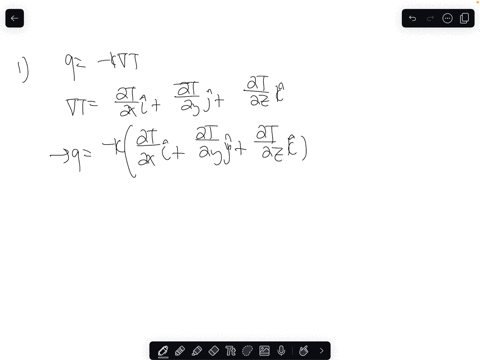 1) q= -k∇T
∇T= ∂T/∂x î+ ∂T/∂y ĵ+ ∂T/∂z k̂
→q= -k(∂T/∂x î+ ∂T/∂y ĵ+ ∂T/∂z k̂)